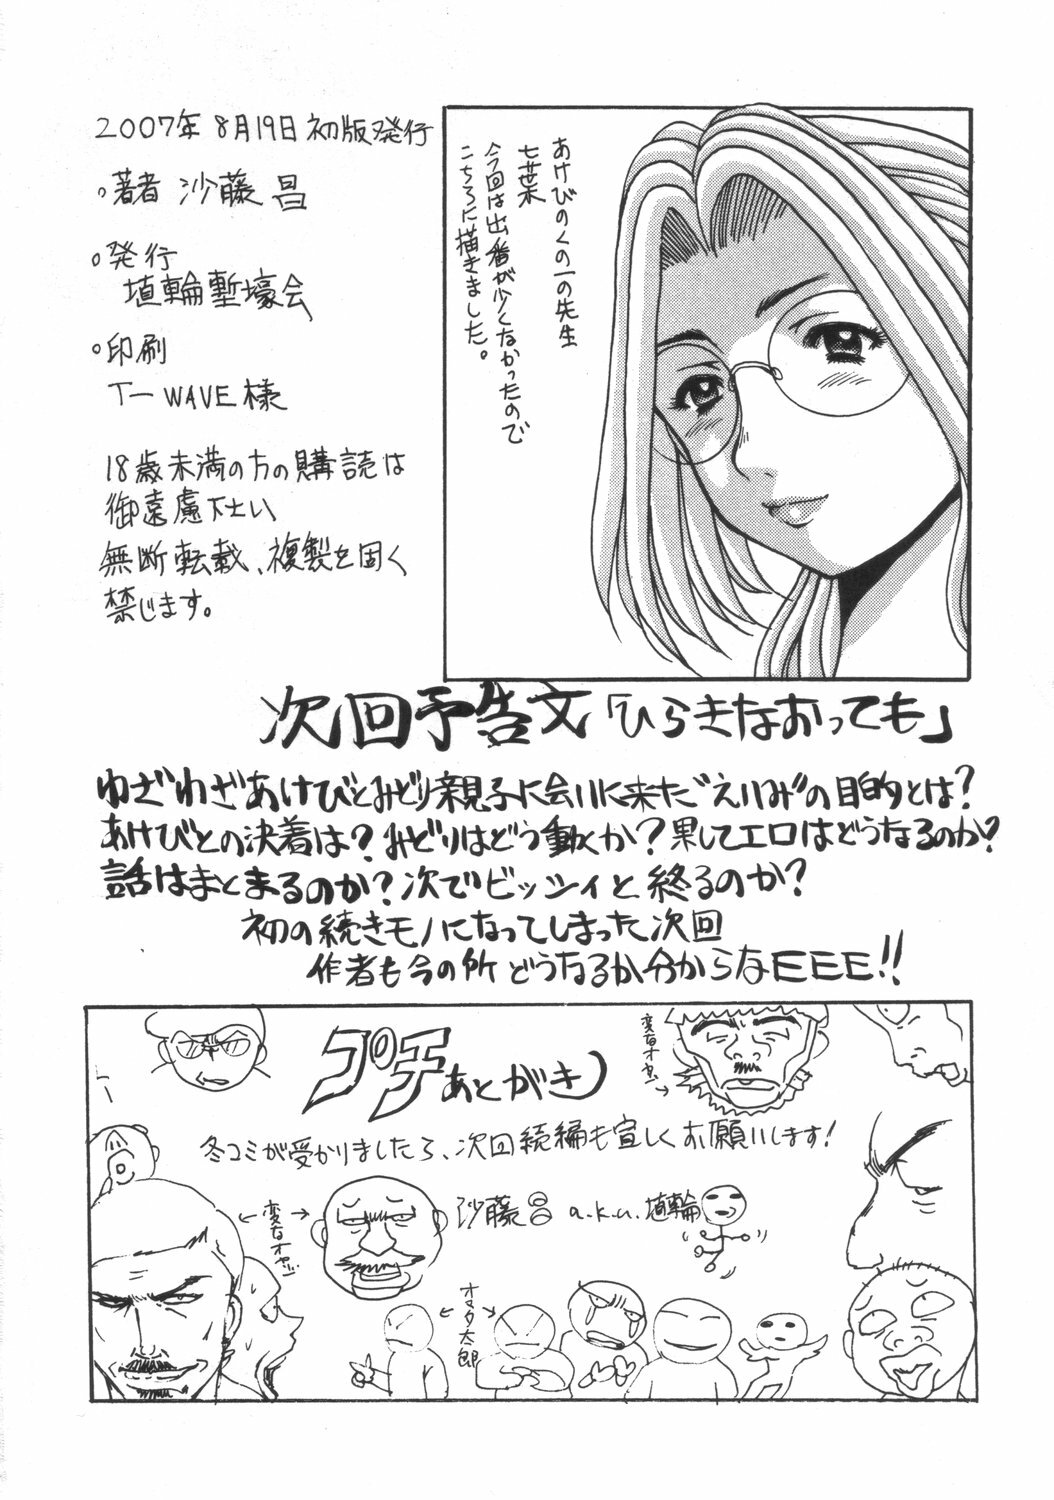 2007年 8月19日 初版発行
。著者 沙藤 昌
。発行
埴輪塹壕会
。印刷
T-WAVE 様
18歳未満の方の購読は
御遠慮下さい
無断転載、複製を固く
禁じます。
あけびのくの一の先生
七葉
今回は出番が少くなかったので
こちらに描きました。
次回予告文「ひらきなおっても」
わざわざあけびとみどり親子に会いに来た“えいみ”の目的とは?
あけびとの決着は?みどりはどう動くか?果してエロはどうなるのか?
話はまとまるのか?次でビッシィと終るのか?
初の続きモノになってしまった次回
作者も今の所どうなるか分からなEEE!!
プチあとがき
冬コミが受かりましたら、次回続編も宜しくお願いします!
沙藤昌 a.k.a.埴輪
変なオヤジ→
←変なオヤジ→
←オマタ太郎→